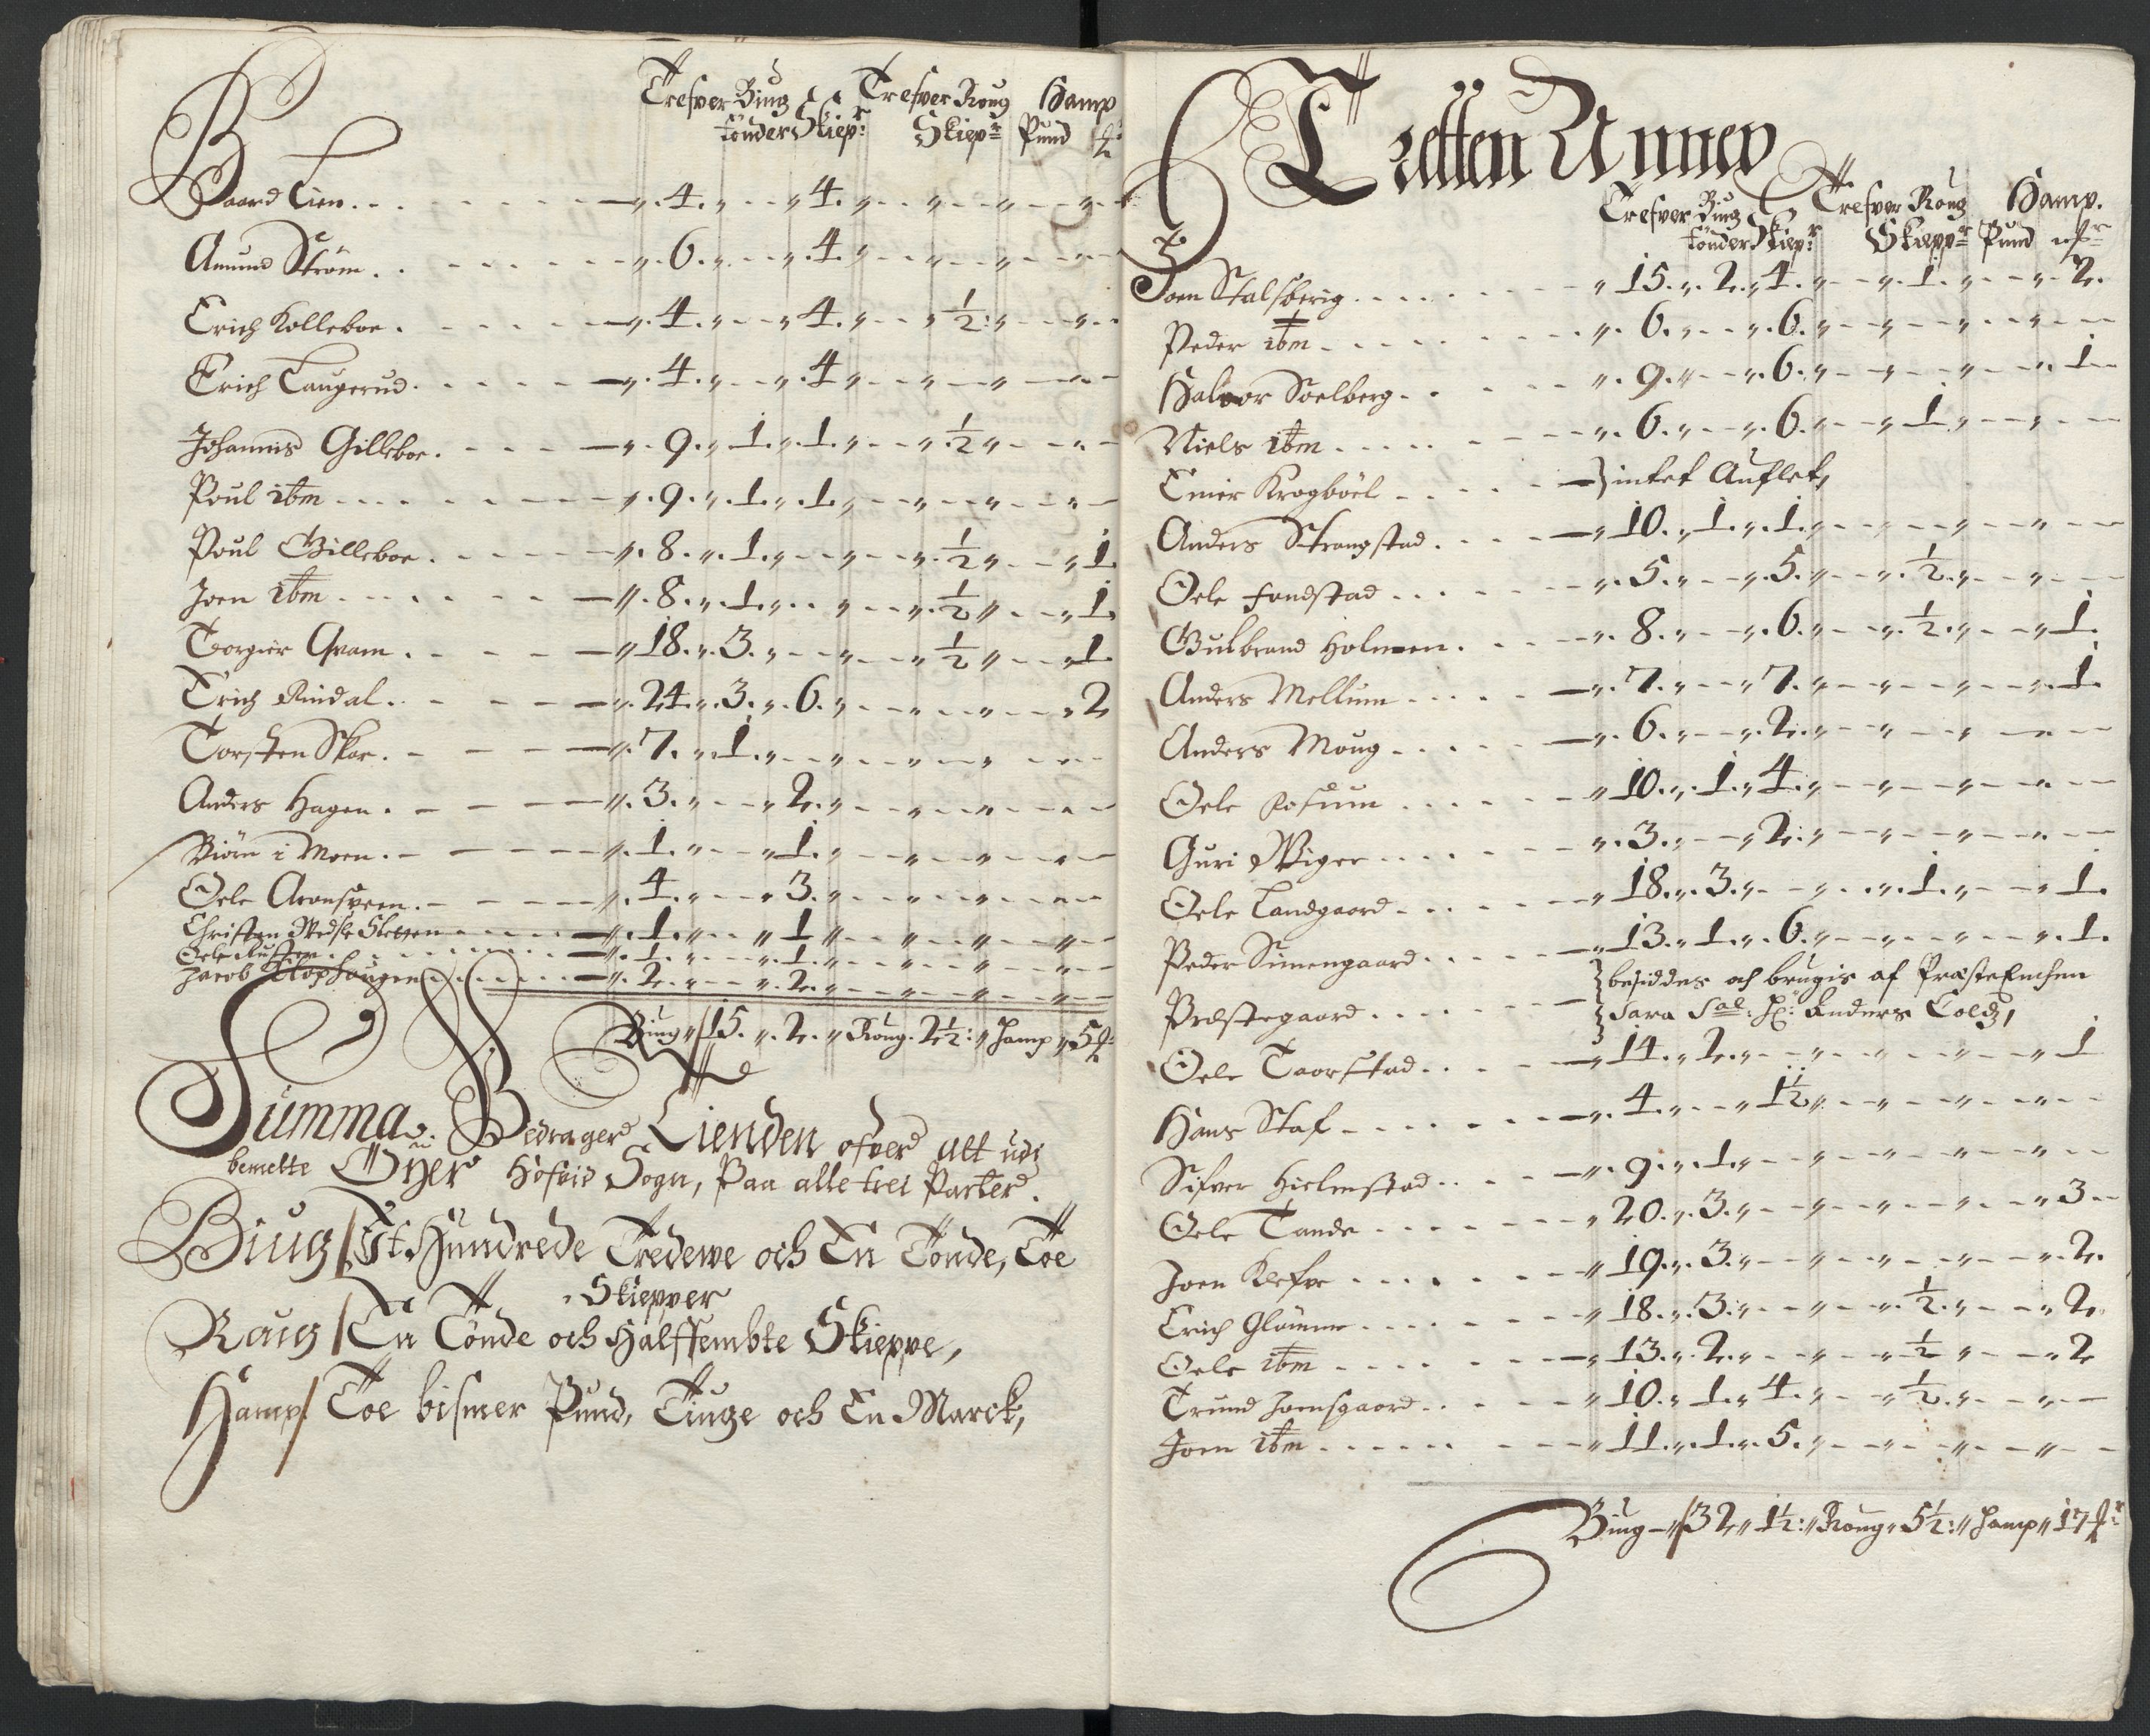 Trefver Biug Trefver Roug Hamp
tönder Skiepr: Skiepr Pund
Baard Lien . . . 4. 4.
Amund Ström . . 6. 4.
Erich Kolleboe . 4. 4. ½
Erich Laugerud . 4. 4
Johannis Gilleboe . 9. 1. 1. ½
Poul ibm . . . 9. 1. 1.
Poul Gilleboe . 8. 1. ½ 1
Joen ibm . . . 8. 1. ½ 1
Torgier Qvam . . 18. 3. ½ 1
Erich Rindal . . 24. 3. 6. 2
Torsten Skar . 7. 1.
Anders Hagen . 3. 2.
Biörn i Moen . 1. 1.
Oele Aronsveen . 4. 3.
Christen Sletten . . . 1. 1
Oele . . . 1. 1.
Jacob Klophaugen . . . 2. 2.
Biug 15. 2. Roug. 2½: Hamp 5
Summa. Bedrager Tienden ofver alt udj
bemelte Öyer Hofvid Sogn, Paa alle trei Parter.
Biug / Et Hundrede Tredewe och En Tönde, Toe
Skiepper
Raug / En Tönde och Halffembte Skieppe,
Hamp / Toe bismer Pund, Tiuge och En Marck,
Tretten Annex
Trefver Biug Trefver Roug Hamp.
tönder Skiepr: Skieppr Pund
Joen Stalsberig . . . 15. 2. 4. 1. 2.
Peder ibm . . . 6. 6.
Halvor Soelberg . . 9. 6. 1
Niels ibm . . . 6. 6. 1.
Einer Krogböel . . . intet Auflet,
Anders Strangstad . . . 10. 1. 1.
Oele Fondstad . . . 5. 5. ½.
Gulbrand Holmen . . 8. 6. ½. 1.
Anders Mellum . . . 7. 7. 1.
Anders Moug . . . 6. 2.
Oele Kosum . . . 10. 1. 4.
Guri Wiger . . . 3. 2.
Oele Landgaard . . . 18. 3. 1. 1.
Peder Simengaard . . . 13. 1. 6. 1.
Præstegaard . . . besiddes och brugis af Præste Enchen
Sara Sal: Hr: Anders Colds,
Oele Taarstad . . . 14. 2. 1
Hans Staf . . . 4. 1½
Sifver Hielmstad . . . 9. 1.
Oele Tande . . . 20. 3. 3
Joen Klefve . . . 19. 3. 2.
Erich Glömme . . . 18. 3. ½. 2.
Oele ibm . . . 13. 2. ½ 2
Trund Joensgaard . . 10. 1. 4. ½.
Joen ibm . . . 11. 1. 5.
Biug 32 1½: Roug 5½: Hamp 17